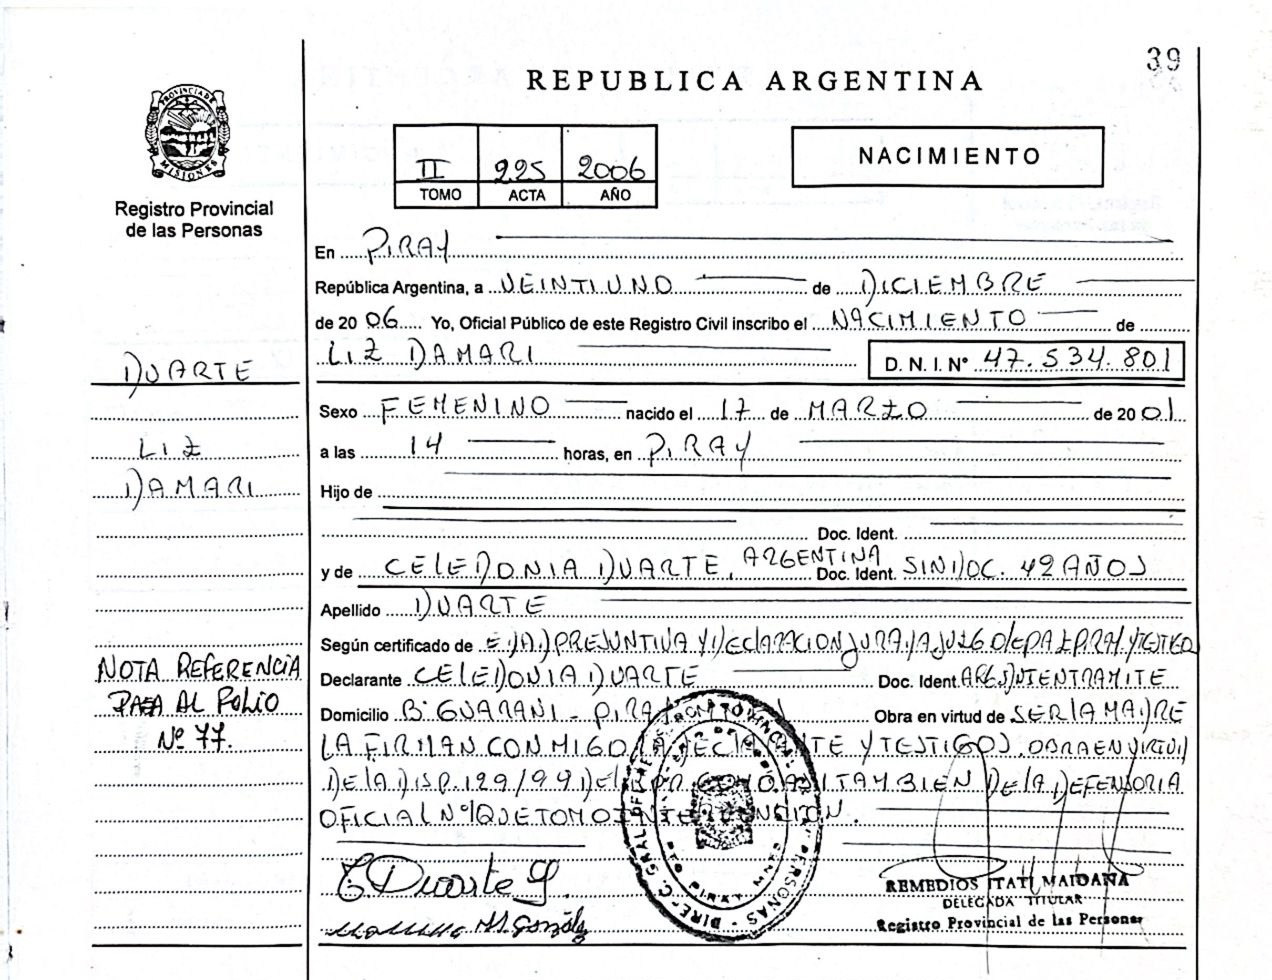 39
REPUBLICA ARGENTINA
PROVINCIA DE MISIONES
Registro Provincial
de las Personas
II 225 2006
TOMO ACTA AÑO
NACIMIENTO
En PIRAY
República Argentina, a VEINTIUNO de DICIEMBRE
de 2006 Yo, Oficial Público de este Registro Civil inscribo el NACIMIENTO de
LIZ DAMARI D. N. I. Nº 47.534.801
DUARTE
LIZ
DAMARI
Sexo FEMENINO nacido el 17 de MARZO de 2001
a las 14 horas, en PIRAY
Hijo de
Doc. Ident.
y de CELEDONIA DUARTE, ARGENTINA Doc. Ident. SIN DOC. 42 AÑOS
Apellido DUARTE
Según certificado de E.DAD PRESUNTIVA Y DECLARACION JURADA JUZGADO DE PAZ PIRAY TESTIGO
Declarante CELEDONIA DUARTE Doc. Ident. ARG. DNI EN TRAMITE
Domicilio Bº GUARANI - PIRAY Obra en virtud de SER LA MADRE
LA FIRMAN CONMIGO LA DECLARANTE Y TESTIGOS. OBRA EN VIRTUD
DE LA DISP. 129/99 DEL TAMBIEN DE LA DEFENSORIA
OFICIAL Nº 1 QUE TOMO INTERVENCION.
NOTA REFERENCIA
PASA AL FOLIO
Nº 77.
C Duarte G.
M. González
DIREC. GRAL. DEL REG. PROVINCIAL DE PERSONAS
PTO PIRAY
REMEDIOS ITATI MAIDANA
DELEGADA TITULAR
Registro Provincial de las Personas